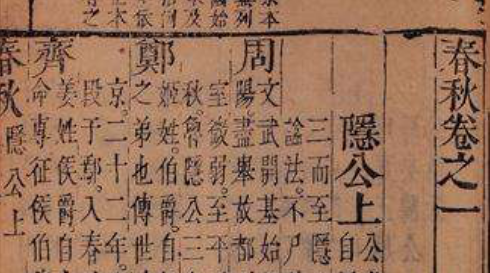 春秋卷之一
隱公上
公
自
三而至隱
謚法。不尸
周
文武開基始
陽盡舉故都
室微弱。至平
秋。魯隱公三
鄭
姬姓。伯爵。自
之弟也傳世
京。二十二年。
段于鄢。入春
齊
姜姓。侯爵。自
命專征侯伯
春秋 隱公上